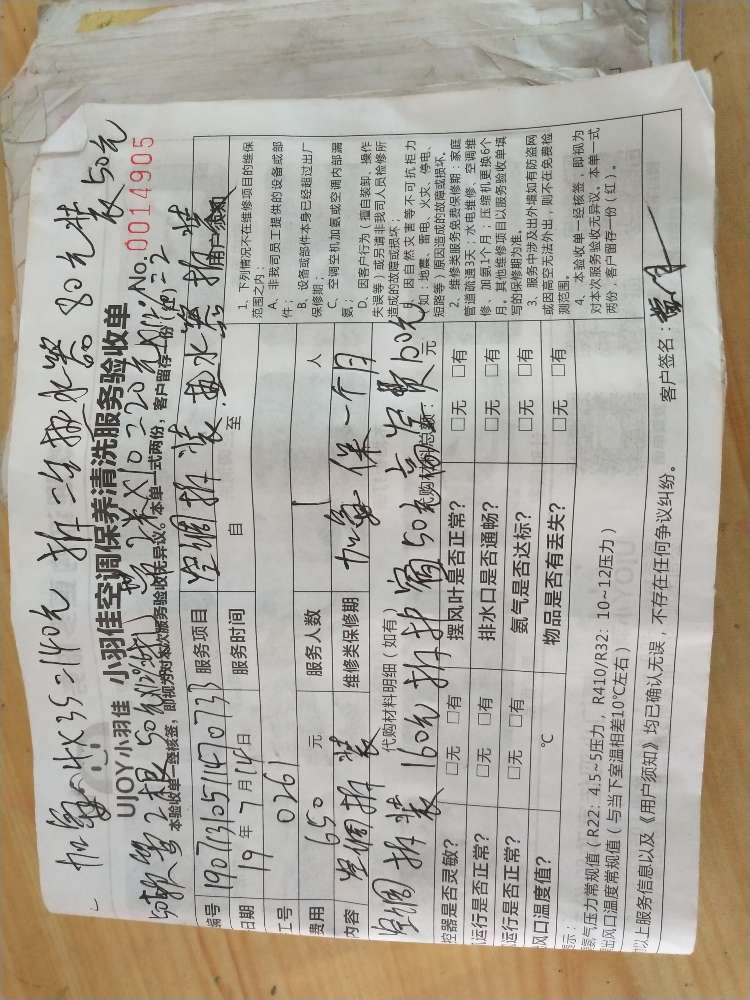 加氟 4X35=140元 拆二台热水器 80元装50元
UJOY小羽佳 小羽佳空调保养清洗服务验收单 No. 0014905
软管2根50元
本验收单一经核签，即视为对本次服务验收无异议。本单一式两份，客户留存一份（红）。
编号 19071310511470733 服务项目 空调拆装 热水器拆装 用户须知
日期 19年7月14日 服务时间 自 至
工号 0261
费用 650 元 服务人数 1 人
内容 空调拆装 维修类保修期 加氟保一个月
代购材料明细（如有） 代购材料总额： 元
空调拆装 160元 拆护窗50元 高空费100元
控器是否灵敏？ □无 □有 摆风叶是否正常？ □无 □有
运行是否正常？ □无 □有 排水口是否通畅？ □无 □有
运行是否正常？ □无 □有 氨气是否达标？ □无 □有
风口温度值？ ℃ 物品是否有丢失？ □无 □有
1、下列情况不在维修项目的维保
范围之内；
A、非我司员工提供的设备或部
件；
B、设备或部件本身已经超过出厂
保修期；
C、空调空机加氨或空调内部漏
氨；
D、因客户行为（擅自装卸、操作
失误等）或另请非我司人员检修所
造成的故障或损坏；
E、因自然灾害等不可抗拒力
（如：地震、雷电、火灾、停电、
短路等）原因造成的故障或损坏。
2、维修类服务免费保修期：家庭
管道疏通3天；水电维修、空调维
修、加氨1个月；压缩机更换6个
月。其他维修项目以服务验收单填
写的保修期为准。
3、服务中涉及出外墙如有防盗网
或因高空无法外出，则不在免费检
测范围。
4、本验收单一经核签，即视为
对本次服务验收无异议。本单一式
两份，客户留存一份（红）。
提示：
氨气压力常规值（R22：4.5~5压力，R410/R32：10~12压力）
出风口温度常规值（与当下室温相差10℃左右）
以上服务信息以及《用户须知》均已确认无误，不存在任何争议纠纷。 客户签名：